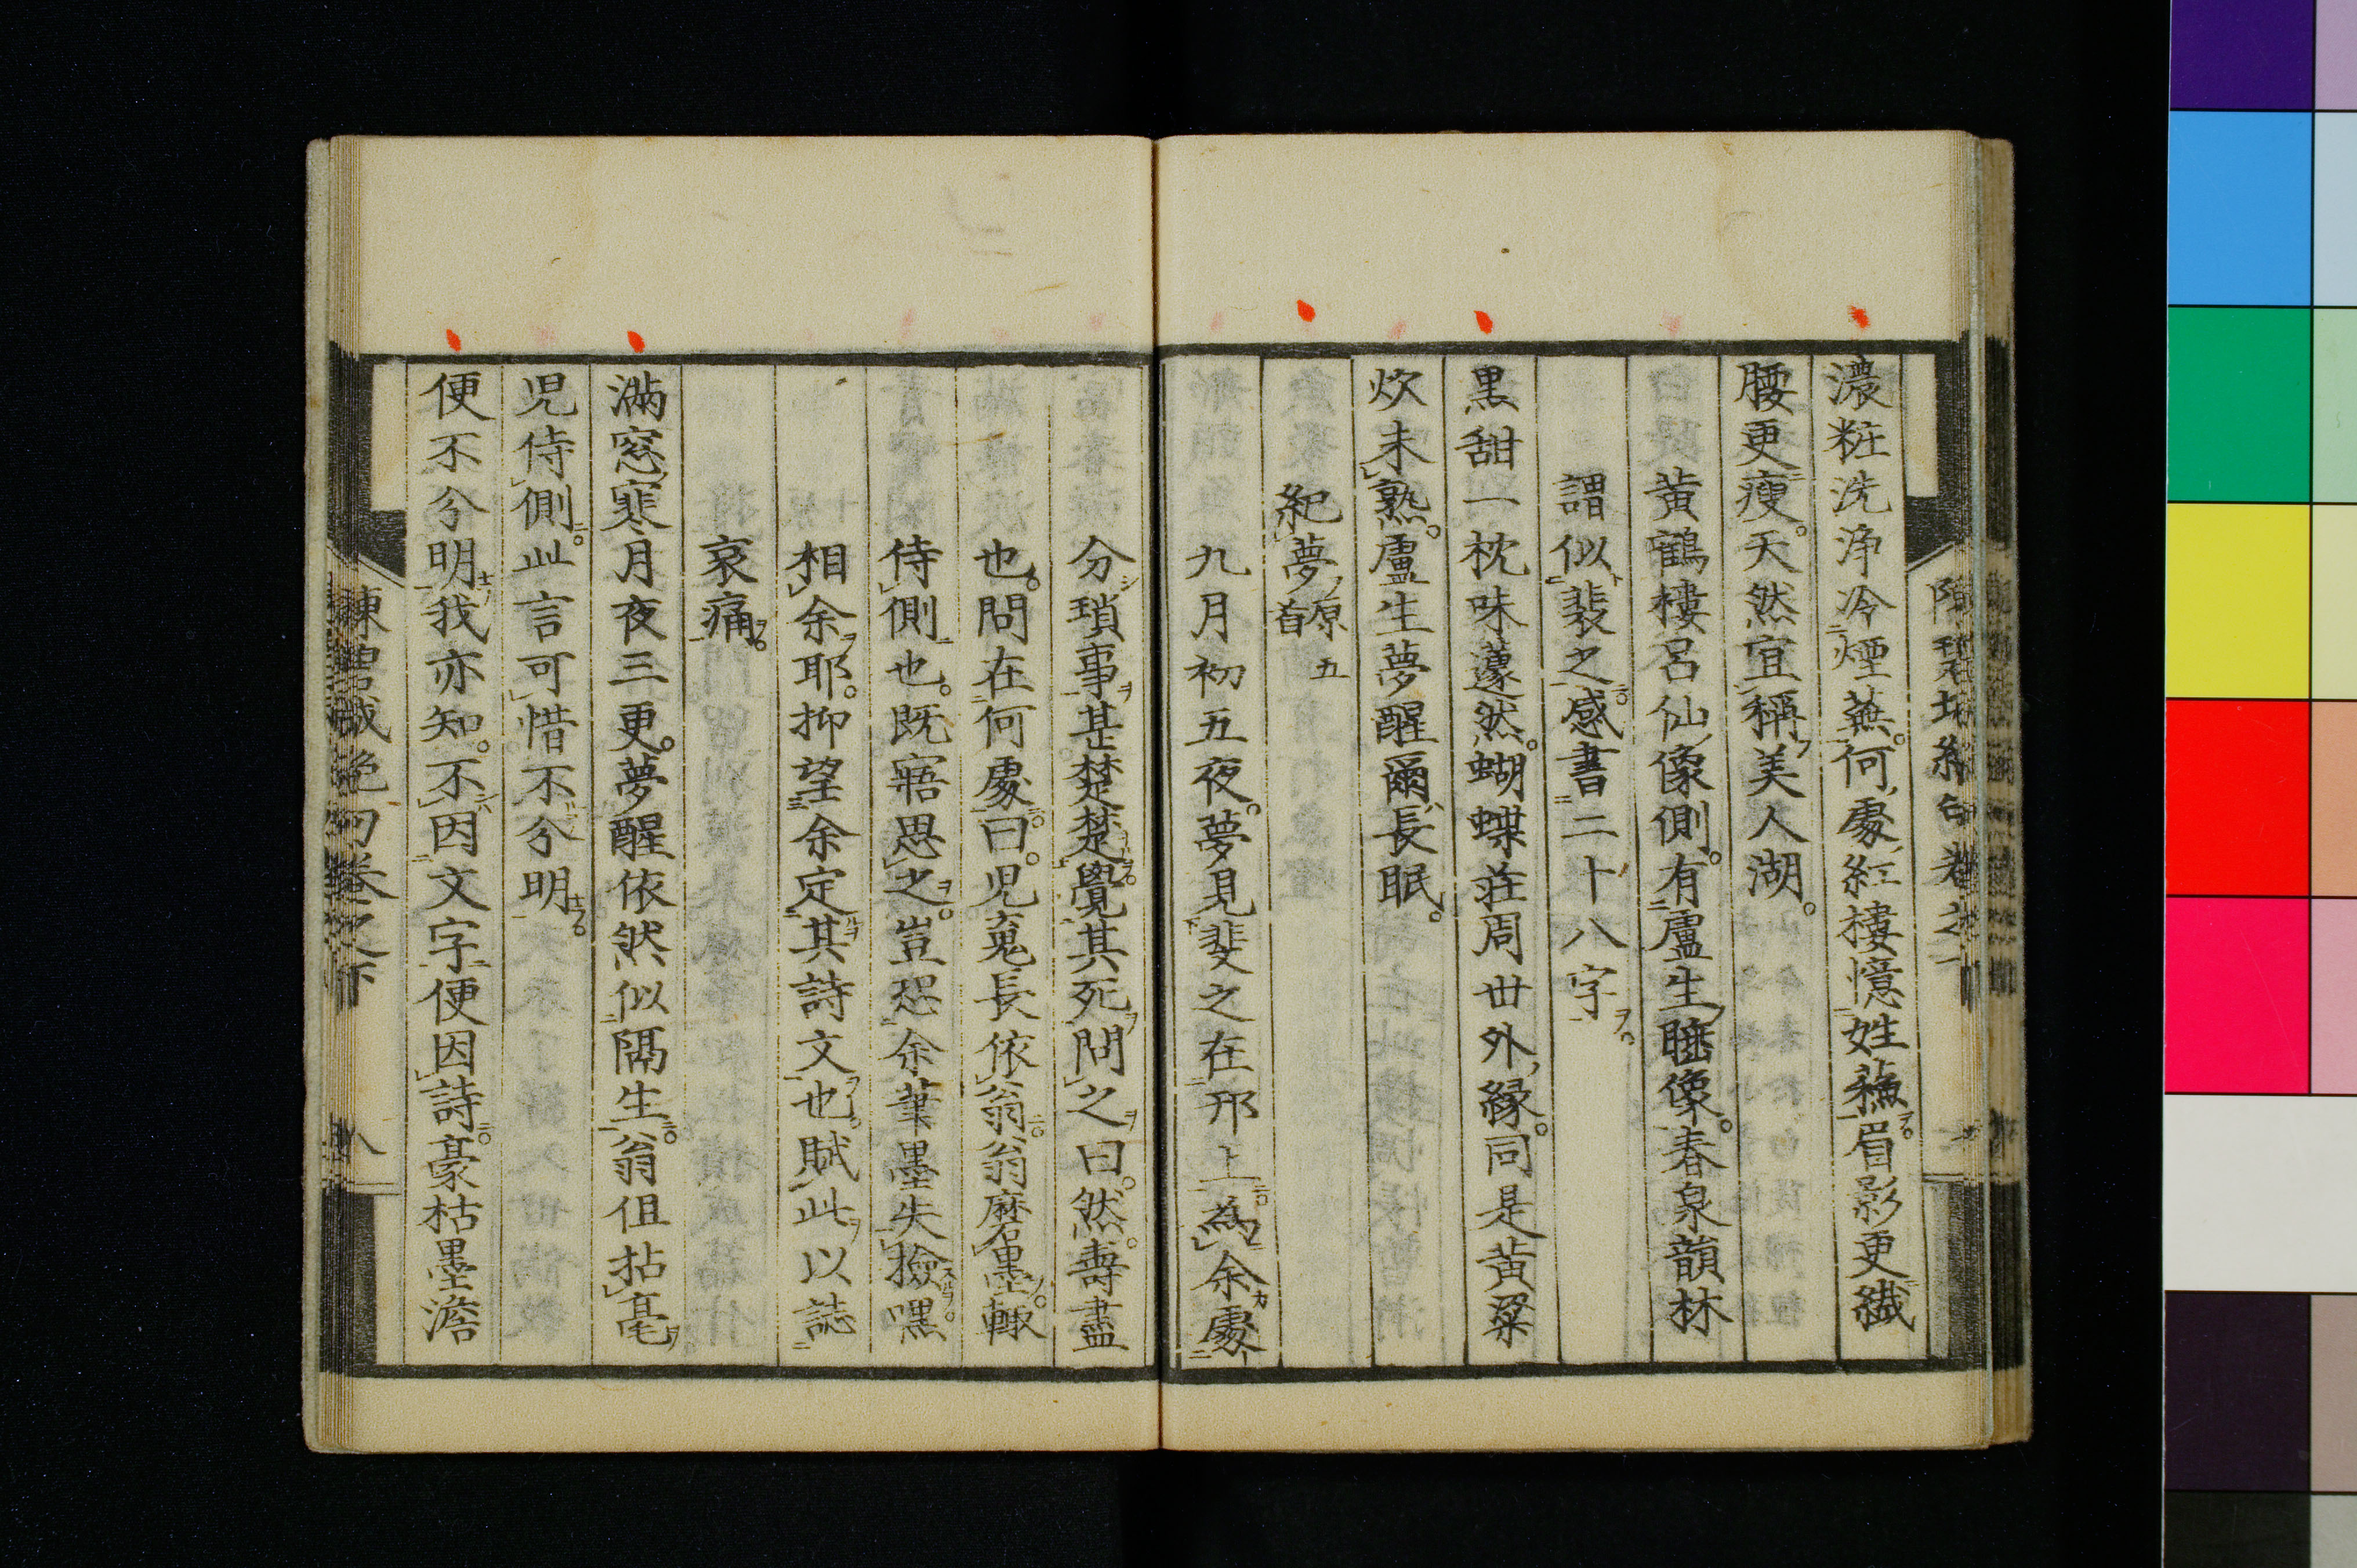 濃粧洗淨冷煙蕪何處紅樓憶姓蘓眉影更纎
腰更瘦天然宜稱美人湖
黃鶴樓呂仙像側有盧生睡像春泉韻林
謂似裴之感書二十八字
黒甜一枕味蘧然蝴蝶莊周世外縁同是黃粱
炊未熟盧生夢醒爾長眠
紀夢原五首
九月初五夜夢見斐之在邢上為余處
分瑣事甚楚楚覺其死問之曰然壽盡
也問在何處曰児䰟長依翁翁磨墨輙
侍側也既寤思之豈恐余筆墨失撿嘿
相余耶抑望余定其詩文也賦此以誌
哀痛
滿窓寒月夜三更夢醒依然似隔生翁但拈毫
児侍側此言可惜不分明
便不分明我亦知不因文字便因詩豪枯墨澹
巻之下
八